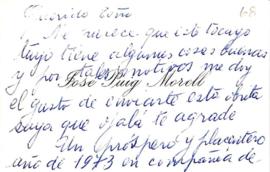 Querido Toño
Me parece que este tocayo
tuyo tiene algunas cosas buenas
y por tales motivos me doy
José Puig Morell
el gusto de enviarte esta obrita
suya que ojalá te agrade
Un próspero y placentero
año de 1973 en compañía de